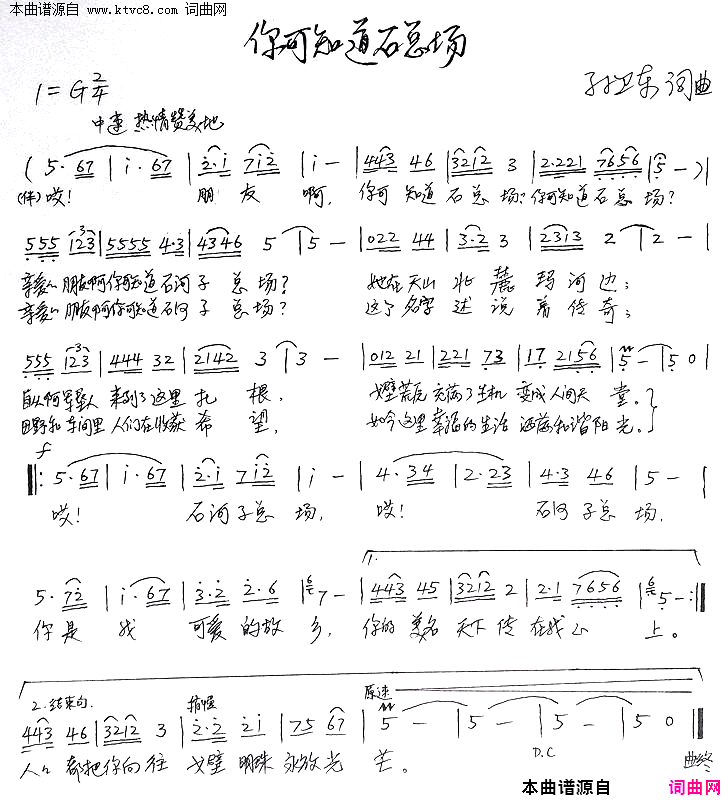 本曲谱源自 www.ktvc8.com 词曲网
你可知道石总场
1=G 2/4
孙卫东 词曲
中速 热情赞美地
(5·67 | i·67 | 2·i 7i2 | i — | 443 46 | 3212 3 | 2·221 7656 | 5 —)|
(伴)哎! 朋友啊, 你可知道石总场? 你可知道石总场?
555 123 | 5555 4·3 | 4346 5 | 5 — | 022 44 | 3·2 3 | 2313 2 | 2 — |
亲爱的朋友啊你可知道石河子总场? 她在天山北麓玛河边;
亲爱的朋友啊你可知道石河子总场? 这个名字述说着传奇;
555 123 | 444 32 | 2142 3 | 3 — | 012 21 | 221 73 | 17 2156 | 5 — | 5 0 |
自从啊军垦人来到了这里扎根, 戈壁荒原充满了生机变成人间天堂。
田野和车间里人们在收获希望, 如今这里幸福的生活洒满和谐阳光。
f
5·67 | i·67 | 2·i 7i2 | i — | 4·34 | 2·23 | 4·3 46 | 5 — |
哎! 石河子总场, 哎! 石河子总场,
1.
5·72 | i·67 | 3·2 2·6 | 7 — | 443 45 | 3212 2 | 2·1 7656 | 5 — :|
你是我可爱的故乡, 你的美名天下传在我心上。
2.结束句 稍慢 原速
443 46 | 3212 3 | 2·2 2i | 75 67 | 5 — | 5 — | 5 — | 5 0 |
人人都把你向往戈壁明珠永放光芒。 D.C 曲终
本曲谱源自 词曲网